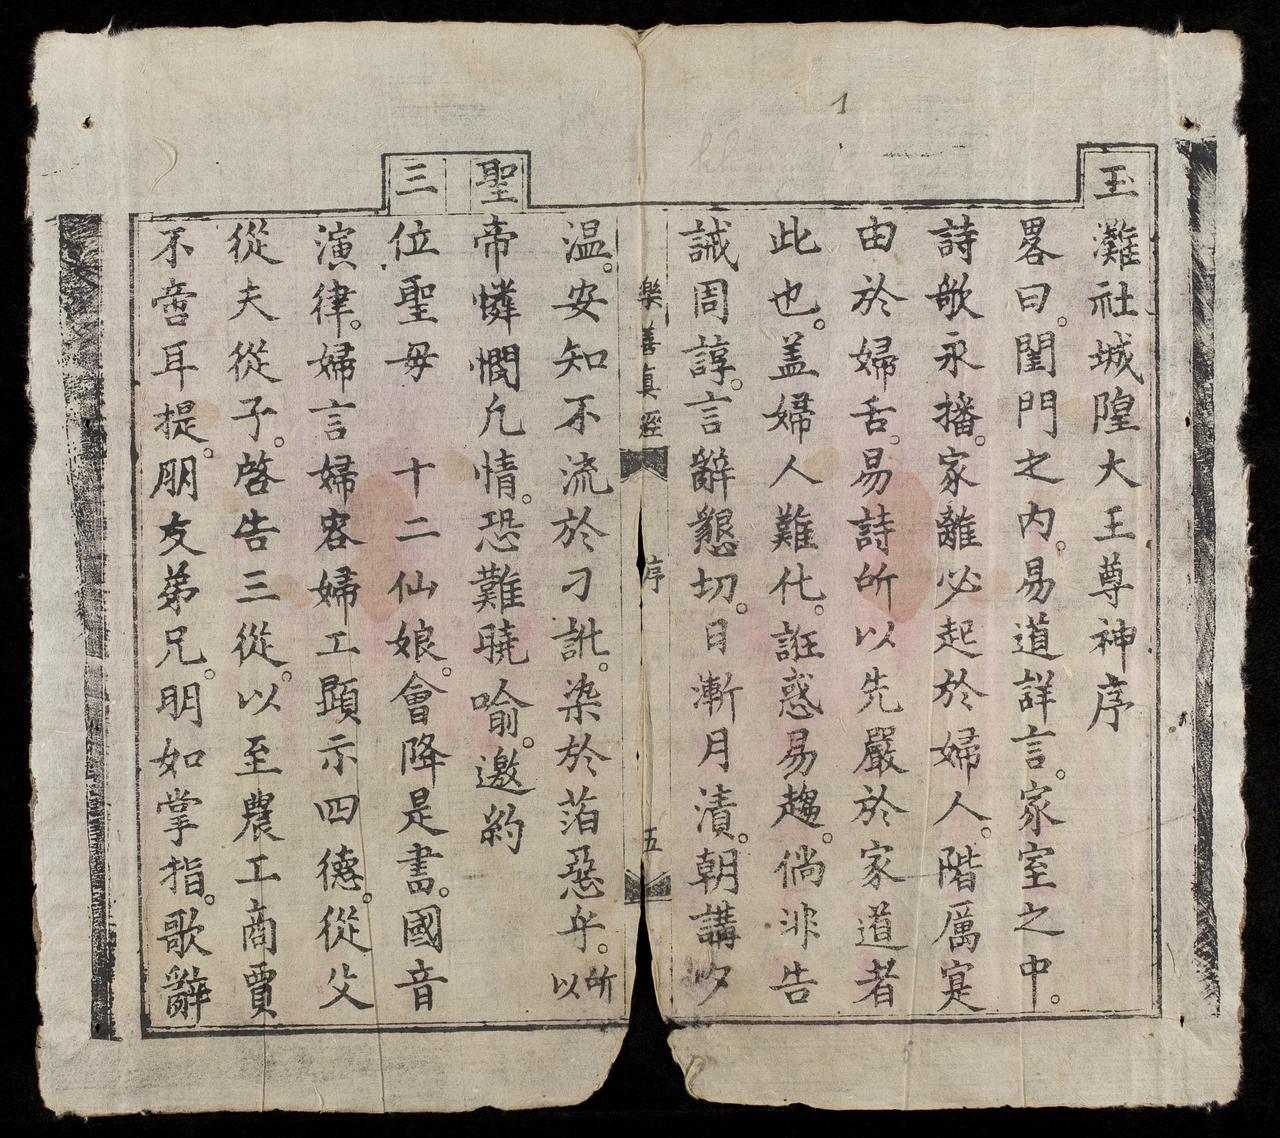 玉灘社城隍大王尊神序
畧曰。閨門之内。易道詳言。家室之中。
詩歌永播。家離必起於婦人。階厲寔
由於婦舌。易詩所以先嚴於家道者
此也。盖婦人難化。誑惑易趨。倘非告
誡周諄。言辭懇切。日漸月漬。朝講夕
樂善真經 序 五
温。安知不流於刁訛。染於滔惡乎。所以
聖帝憐憫凡情。恐難曉喻。邀約
三位聖母 十二仙娘。會降是書。國音
演律。婦言婦容婦工顕示四德。從父
從夫從子。啓告三從。以至農工商賈
不啻耳提。朋友弟兄。明如掌指。歌辭
1